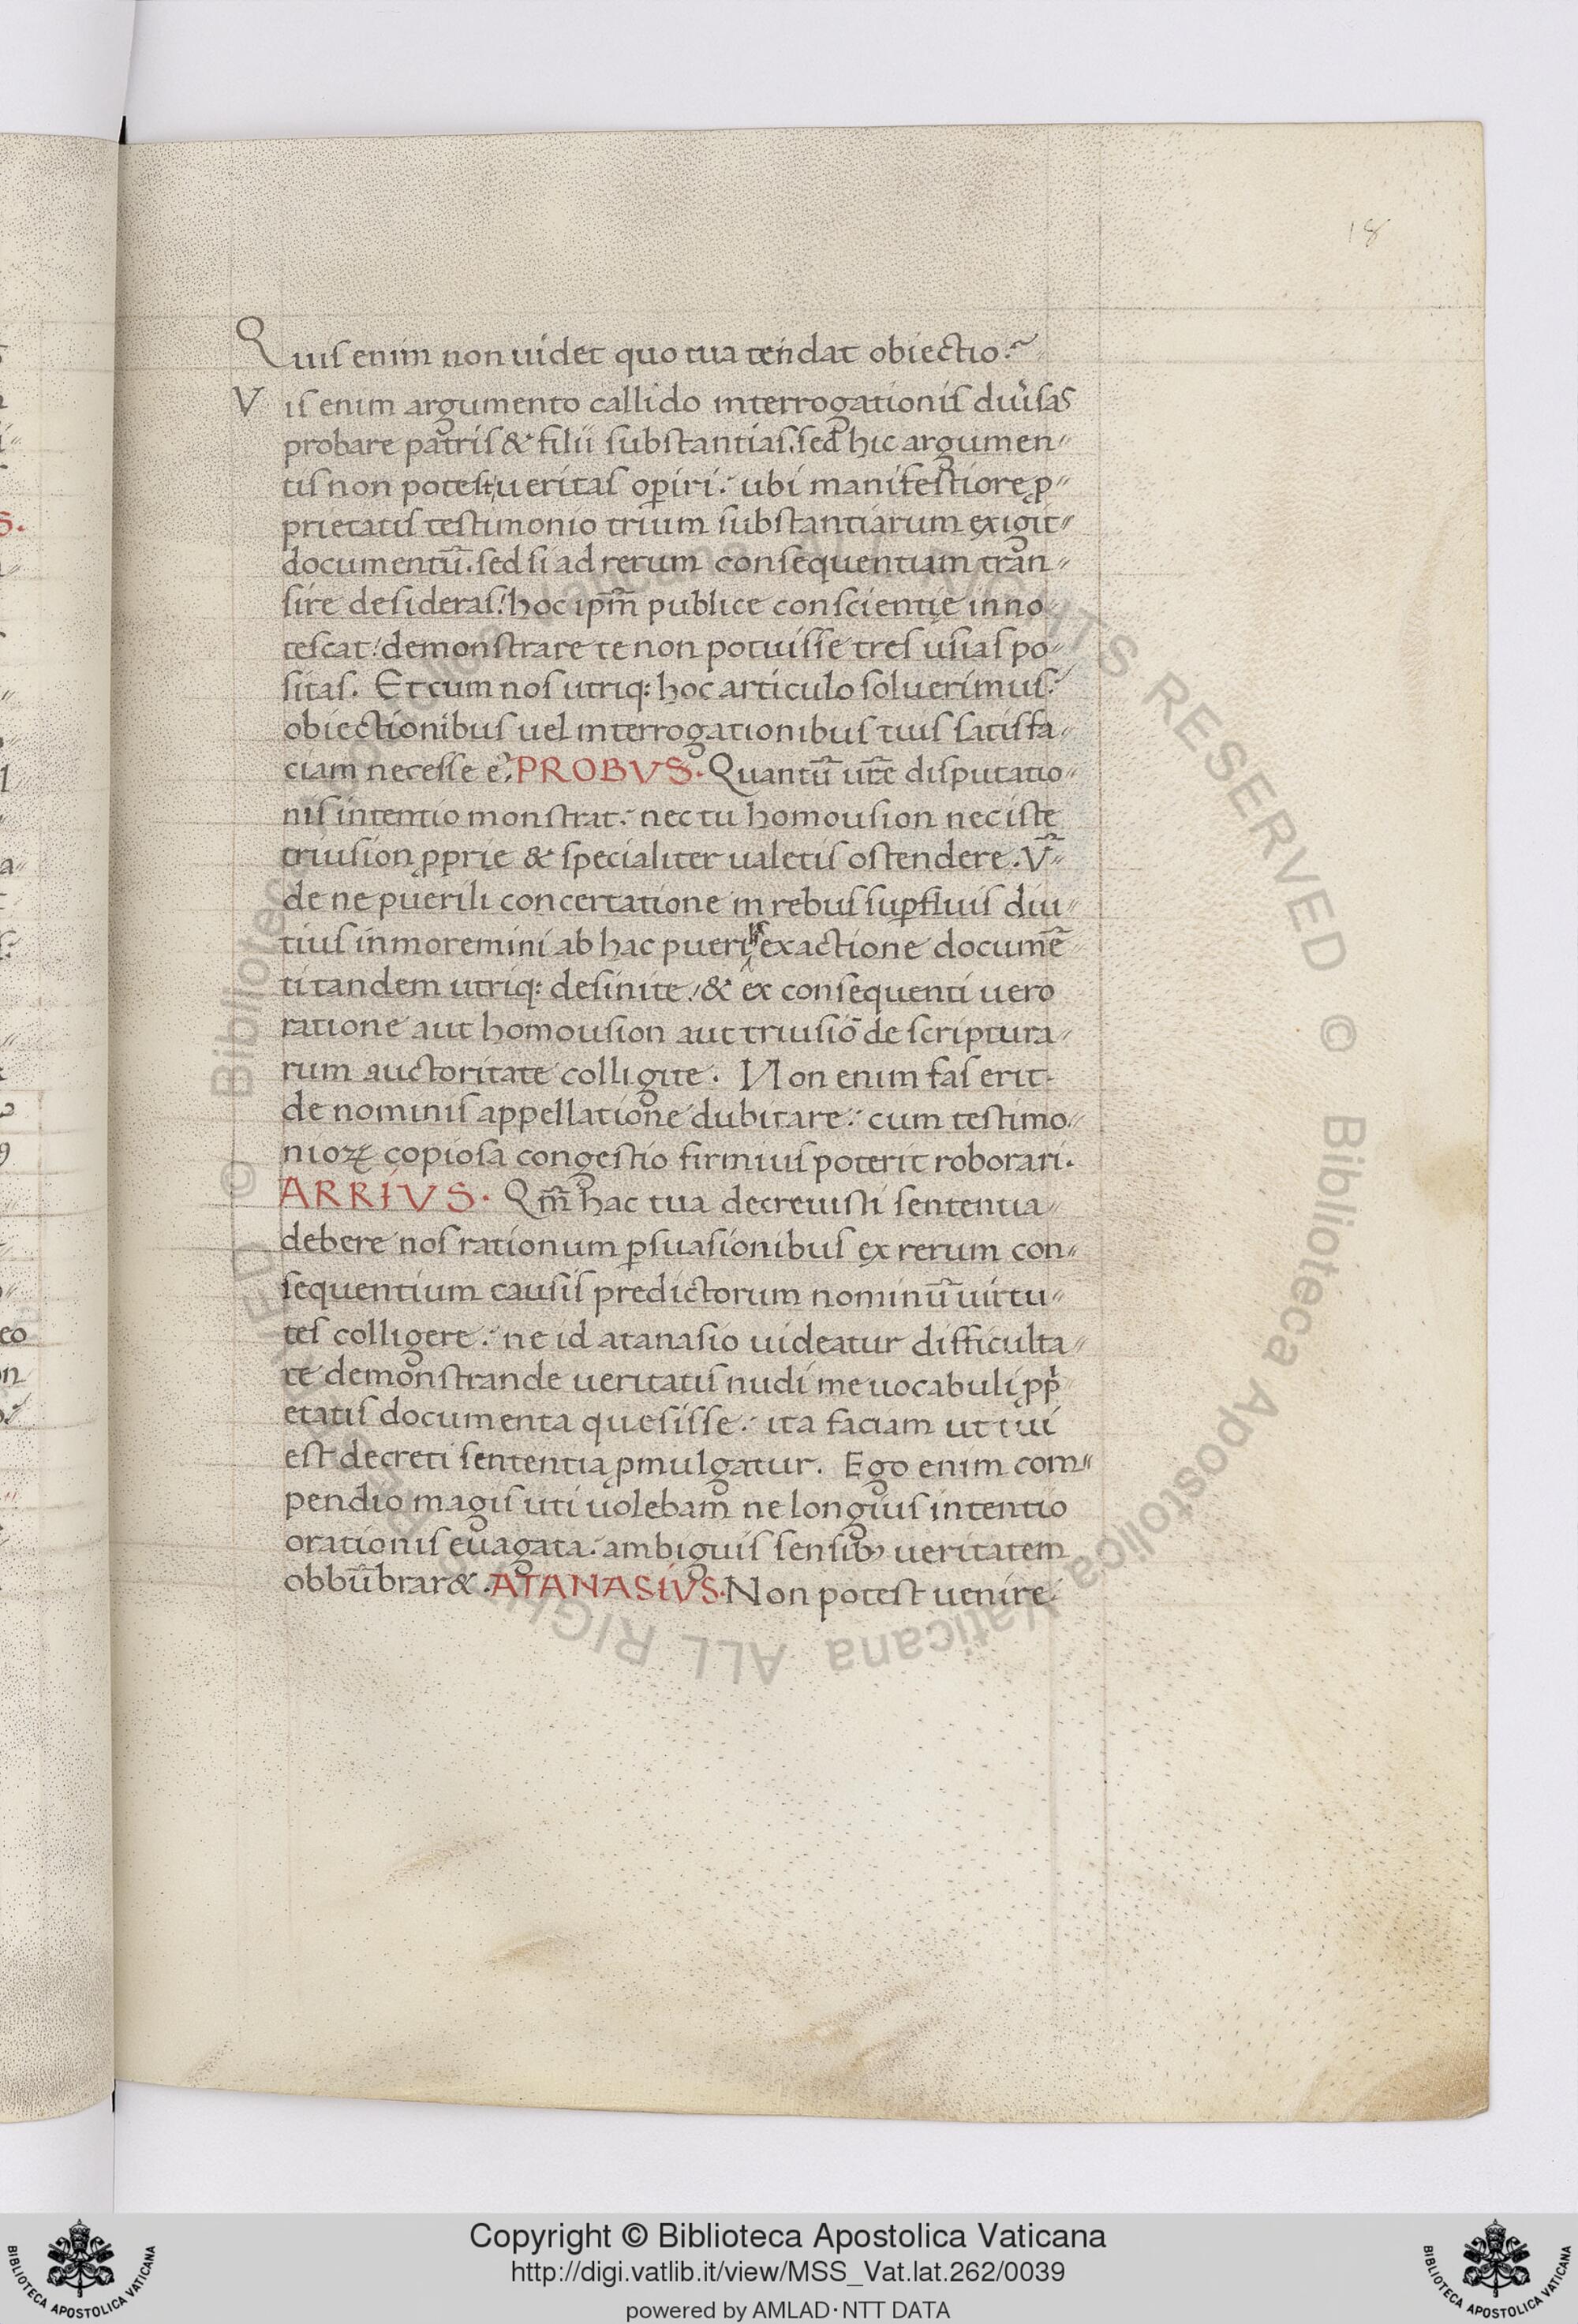 18
Quis enim non uidet quo tua tendat obiectio?
Vis enim argumento callido interrogationis diu̾sas
probare patris & filii substantias. sed hic argumen〃
tis non potest, ueritas oꝑiri. ubi manifestiore ꝓ〃
prietatis testimonio trium substantiarum exigit〃
documentū. sed si ad rerum consequentiam tran〃
sire desideras! hoc ip̄m publice conscientię inno〃
tescat! demonstrare te non potuisse tres usias po〃
sitas. Et cum nos utriq: hoc articulo soluerimus?
obiectionibus uel interrogationibus tuis satisfa〃
ciam necesse ē. PROBVS. Quantū ur̄e disputatio〃
nis intentio monstrat. nec tu homousion nec iste
triusion ꝓprie & specialiter ualetis ostendere. V̄〃
de ne puerili concertatione in rebus suꝑfluis diu〃
tius inmoremini ab hac pueri\li/ exactione documē
ti tandem utriq: desinite! & ex consequenti uero
ratione aut homousion aut triusiō de scriptura〃
rum auctoritate colligite. Non enim fas erit
de nominis appellatione dubitare. cum testimo〃
nioꝝ copiosa congestio firmius poterit roborari.
ARRIVS. Qm̄ hac tua decreuisti sententia
debere nos rationum ꝑsuasionibus ex rerum con〃
sequentium causis predictorum nominū uirtu〃
tes colligere. ne id atanasio uideatur difficulta〃
te demonstrande ueritatis nudi me uocabuli ꝓpͥ
etatis documenta quesisse. ita faciam ut tui
est decreti sententia ꝓmulgatur. Ego enim com〃
pendio magis uti uolebam ne longius intentio
orationis euagata. ambiguis sensib; ueritatem
obbūbrar&. ATANASIVS. Non potest uenire
© Biblioteca Apostolica Vaticana ALL RIGHTS RESERVED
Copyright © Biblioteca Apostolica Vaticana
http://digi.vatlib.it/view/MSS_Vat.lat.262/0039
powered by AMLAD·NTT DATA
BIBLIOTECA APOSTOLICA VATICANA
BIBLIOTECA APOSTOLICA VATICANA